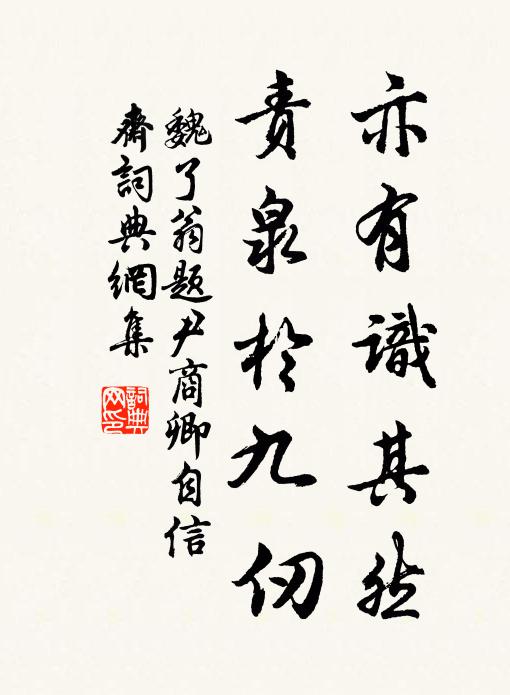 亦有識其然
責泉於九仞
魏了翁題尹商卿自信
齋詞典網集
詞典
网印